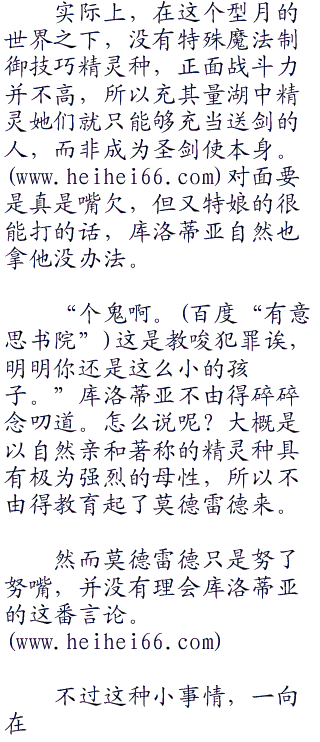 实际上，在这个型月的
世界之下，没有特殊魔法制
御技巧精灵种，正面战斗力
并不高，所以充其量湖中精
灵她们就只能够充当送剑的
人，而非成为圣剑使本身。
(www.heihei66.com)对面要
是真是嘴欠，但又特娘的很
能打的话，库洛蒂亚自然也
拿他没办法。
“个鬼啊。(百度“有意
思书院”)这是教唆犯罪诶，
明明你还是这么小的孩
子。”库洛蒂亚不由得碎碎
念叨道。怎么说呢？大概是
以自然亲和著称的精灵种具
有极为强烈的母性，所以不
由得教育起了莫德雷德来。
然而莫德雷德只是努了
努嘴，并没有理会库洛蒂亚
的这番言论。
(www.heihei66.com)
不过这种小事情，一向
在